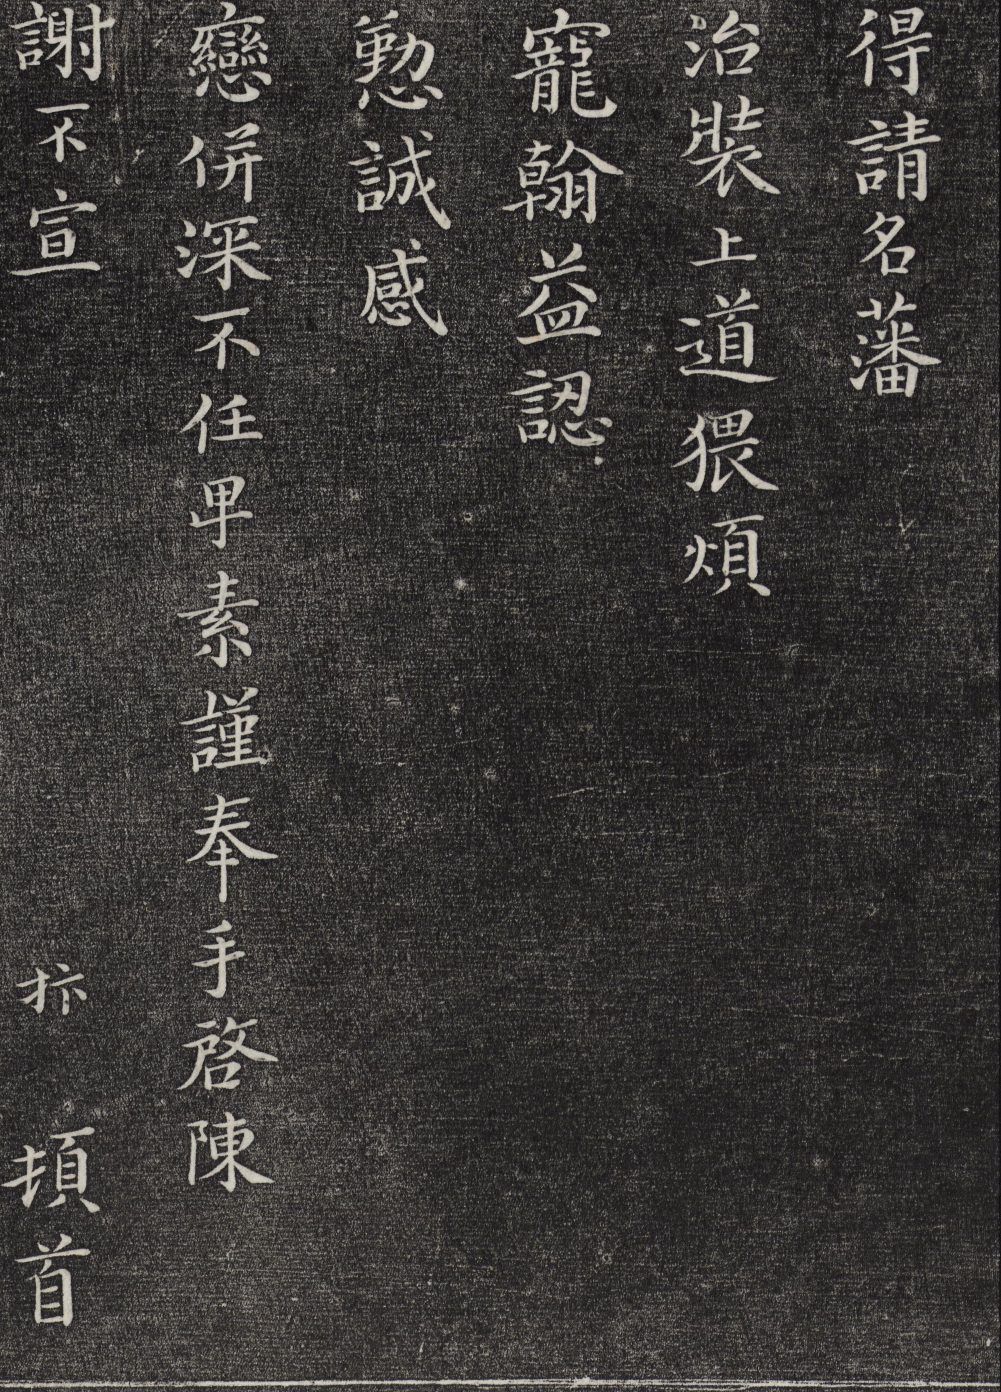 得請名藩
治裝上道猥煩
寵翰益認
懃誠感
戀併深不任卑素謹奉手啓陳
謝不宣 頓首